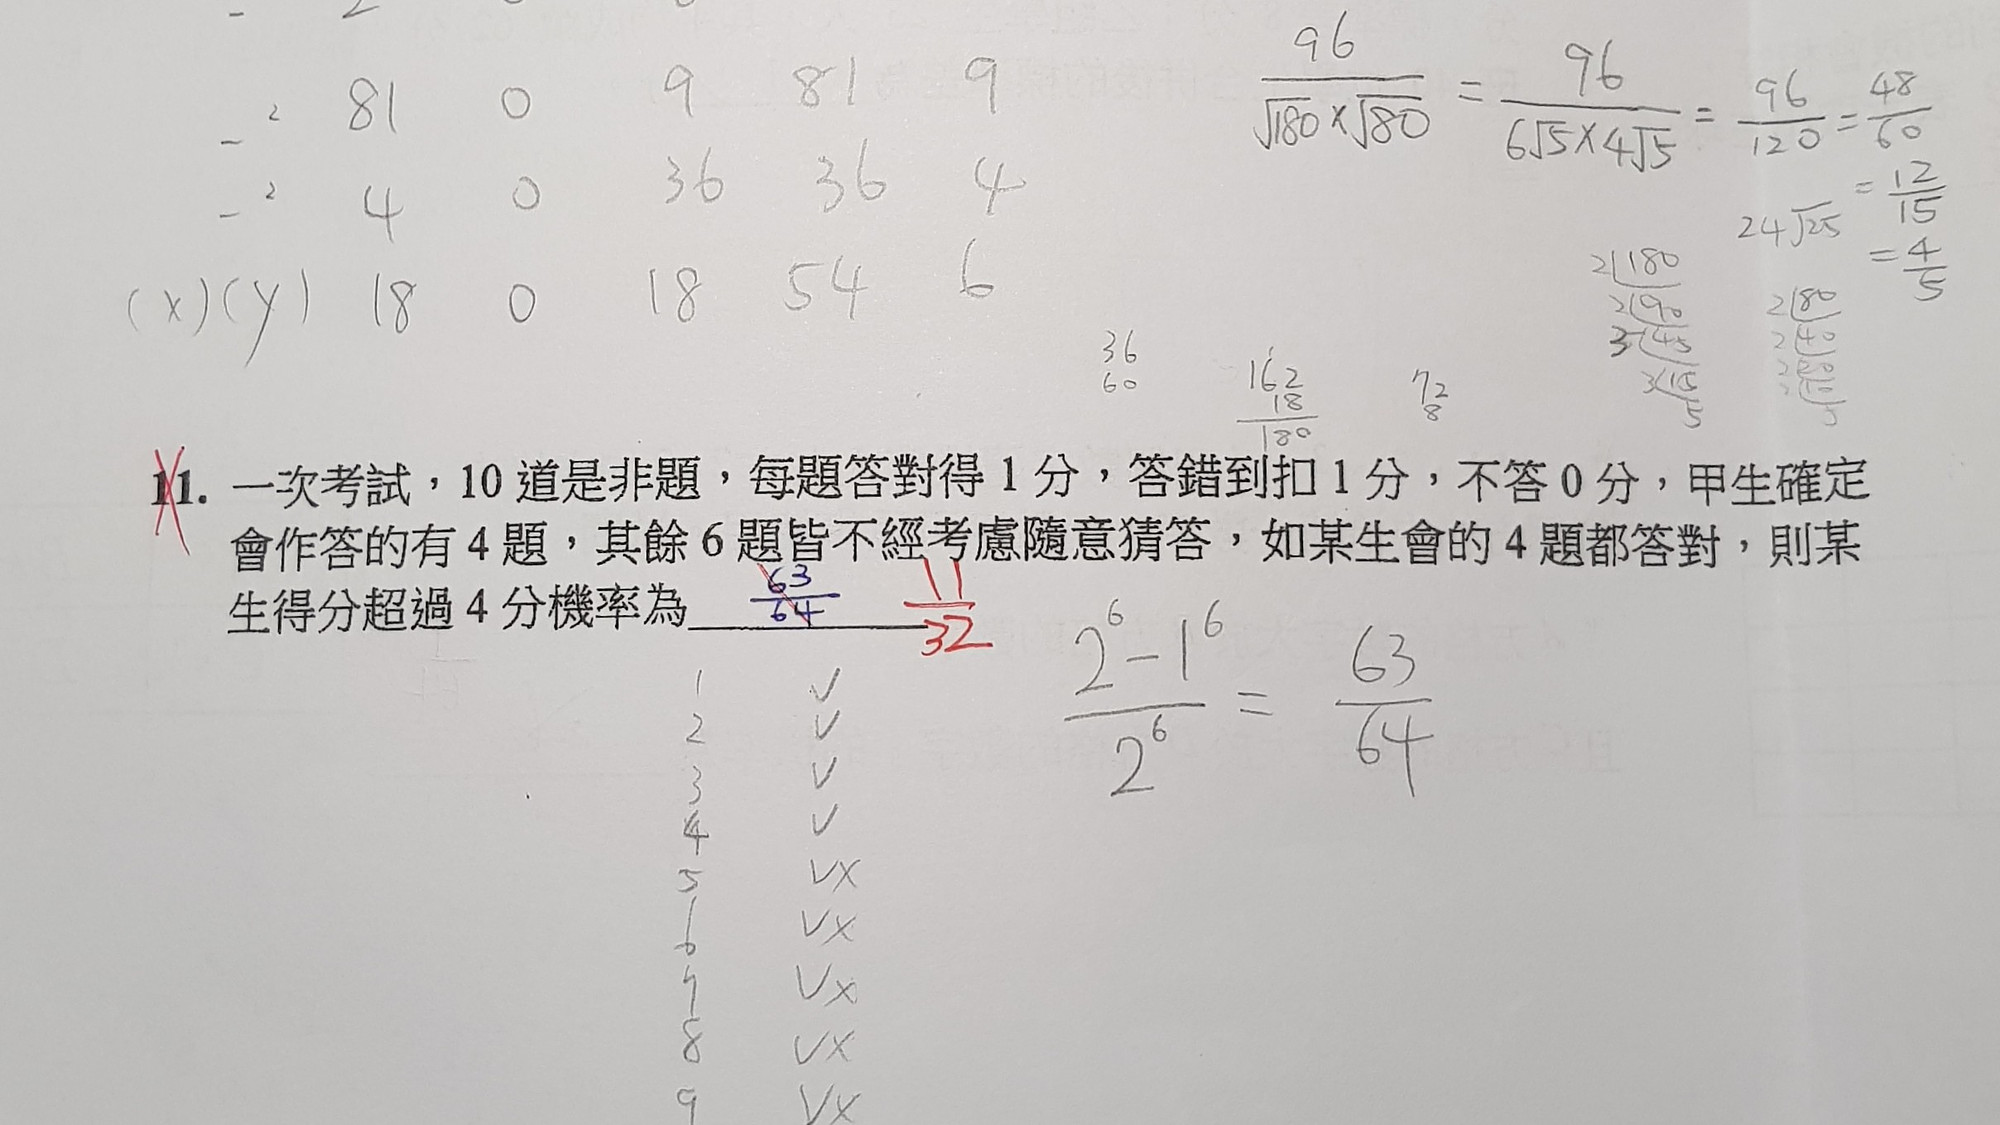 - 2 0 0
- ² 81 0 9 81 9
- ² 4 0 36 36 4
(x)(y) 18 0 18 54 6
96/√180×√80 = 96/6√5×4√5 = 96/120 = 48/60
= 12/15
24√25
= 4/5
2 180
2 90
3 45
3 15
5
2 80
2 40
2 20
2 10
5
36
60
162
18
180
72
8
11. 一次考試，10 道是非題，每題答對得 1 分，答錯到扣 1 分，不答 0 分，甲生確定
會作答的有 4 題，其餘 6 題皆不經考慮隨意猜答，如某生會的 4 題都答對，則某
生得分超過 4 分機率為 63/64 11/32
1 ✓
2 ✓
3 ✓
4 ✓
5 ✓×
6 ✓×
7 ✓×
8 ✓×
9 ✓×
2⁶-1⁶/2⁶ = 63/64